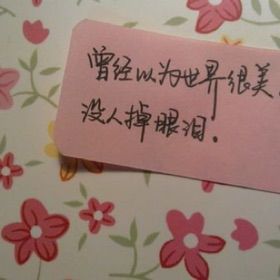 曾经以为世界很美，
没人掉眼泪。